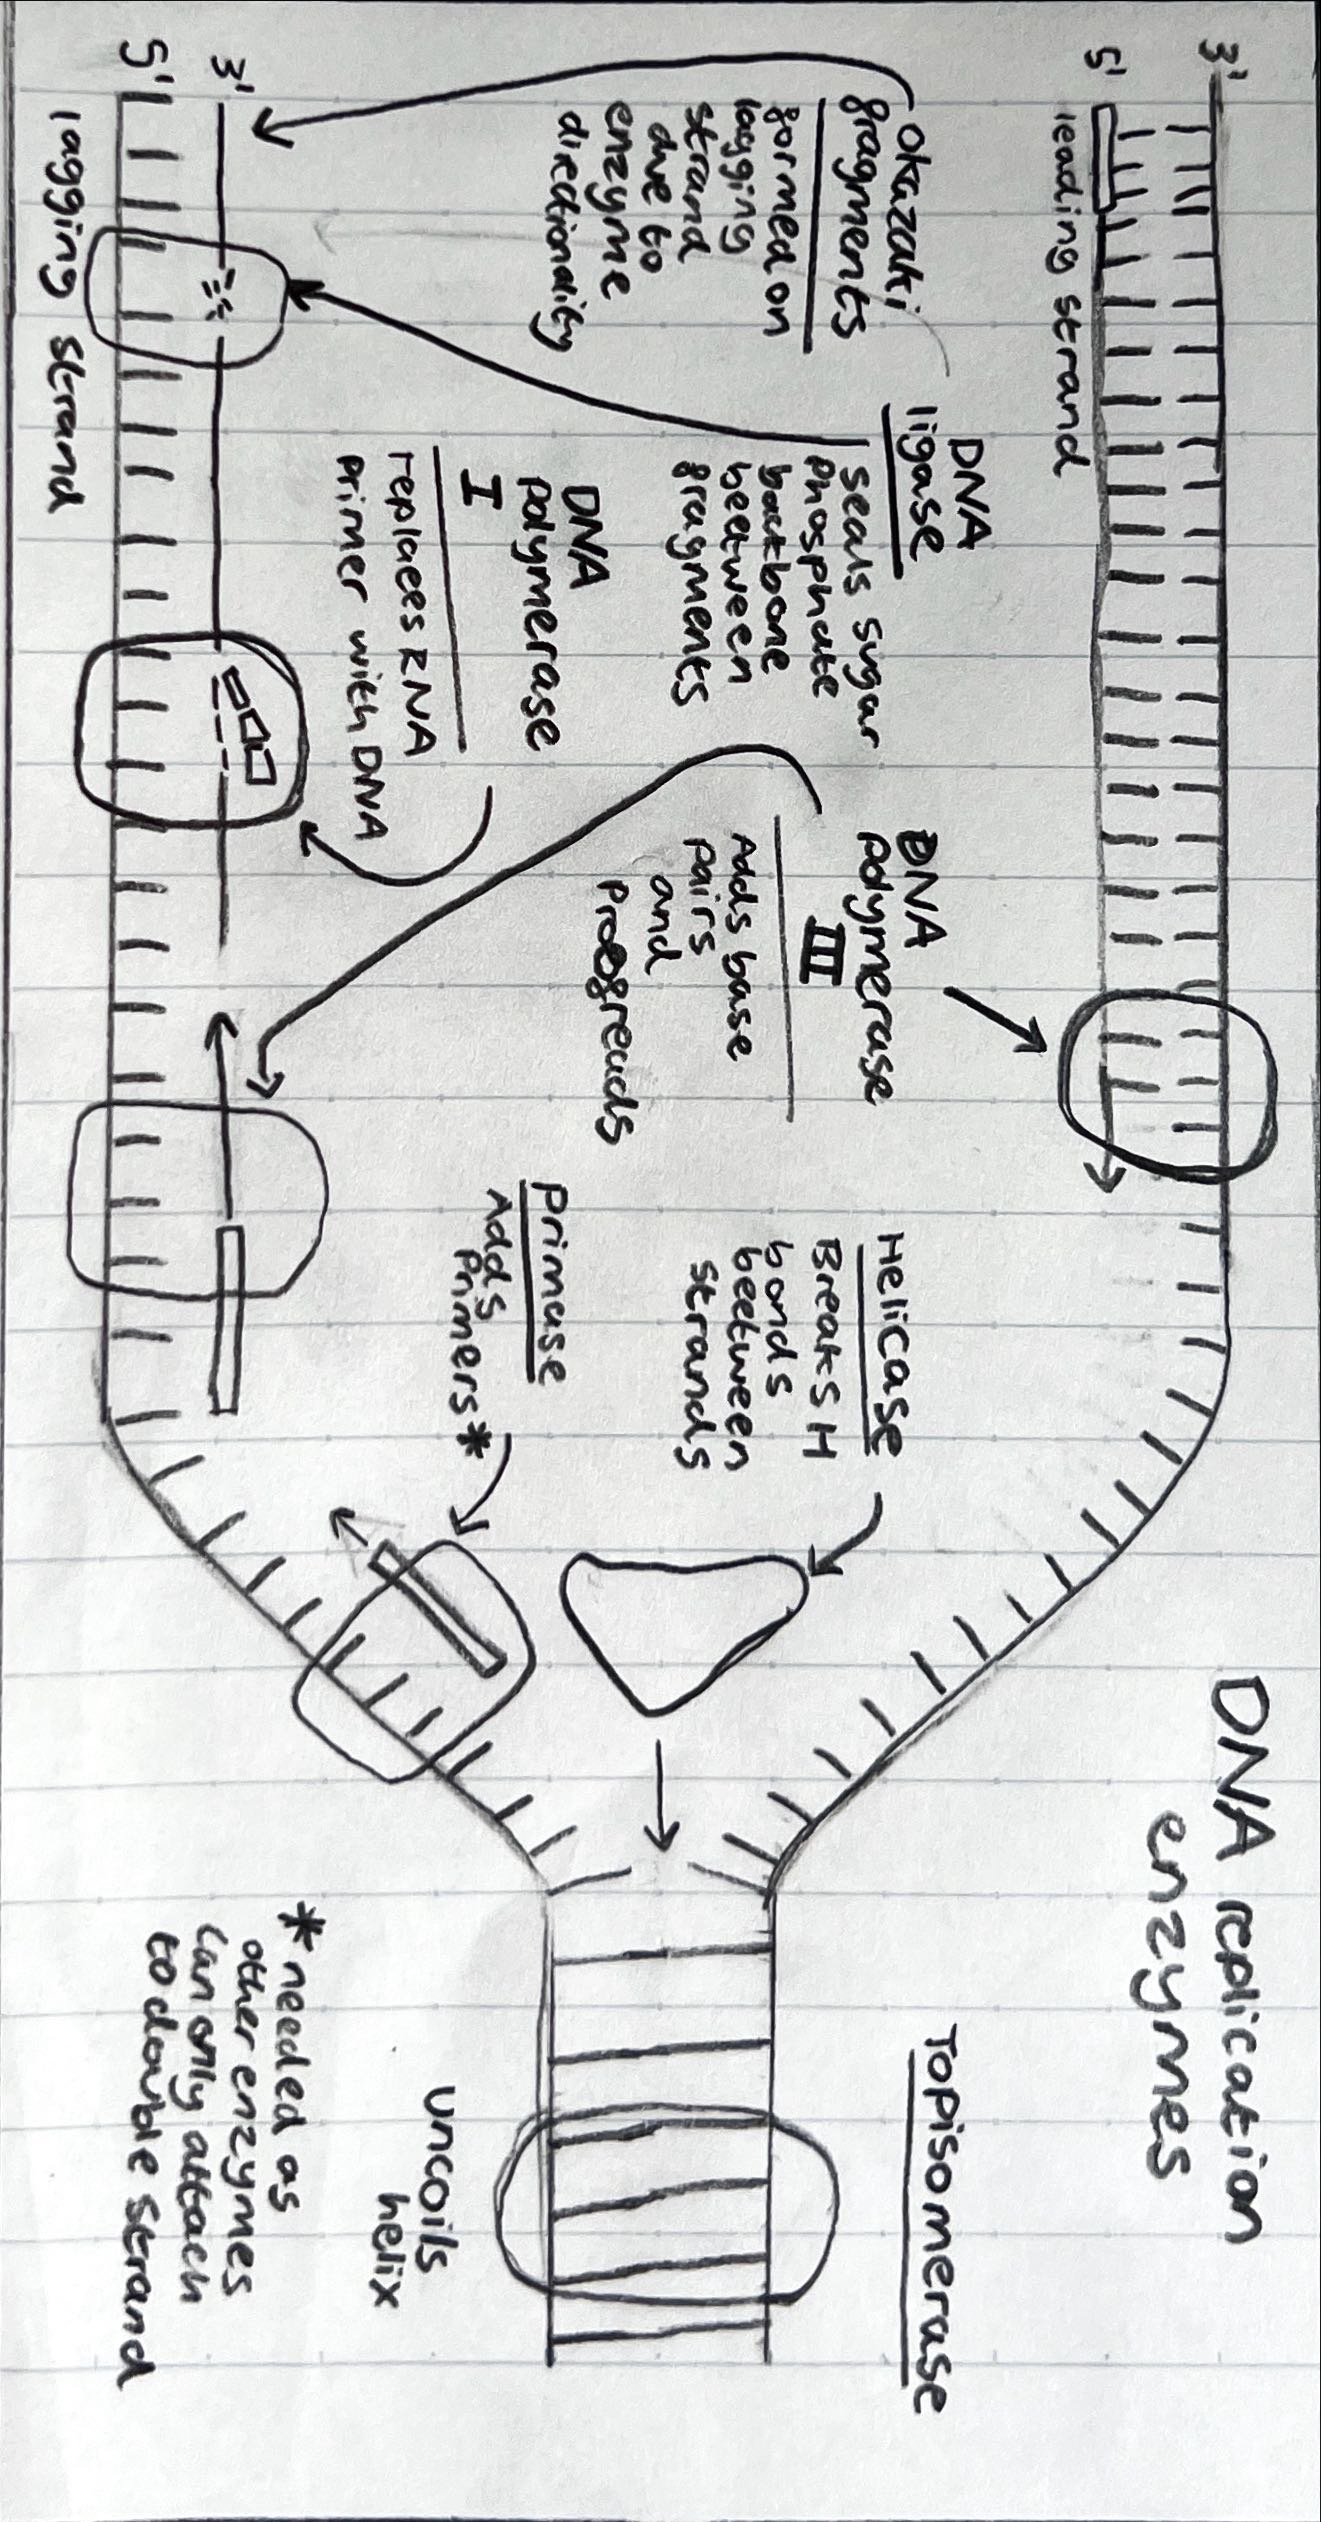 DNA replication
enzymes
3'
5'
leading strand
Okazaki
fragments
formed on
lagging
strand
due to
enzyme
directionality
DNA
ligase
seals sugar
phosphate
backbone
beetween
fragments
DNA
polymerase
I
replaces RNA
primer with DNA
DNA
polymerase
III
Adds base
pairs
and
Proofreads
Helicase
Breaks H
bonds
beetween
strands
Primase
Adds
Primers*
Topisomerase
uncoils
helix
*needed as
other enzymes
can only attach
to double strand
3'
5'
lagging strand